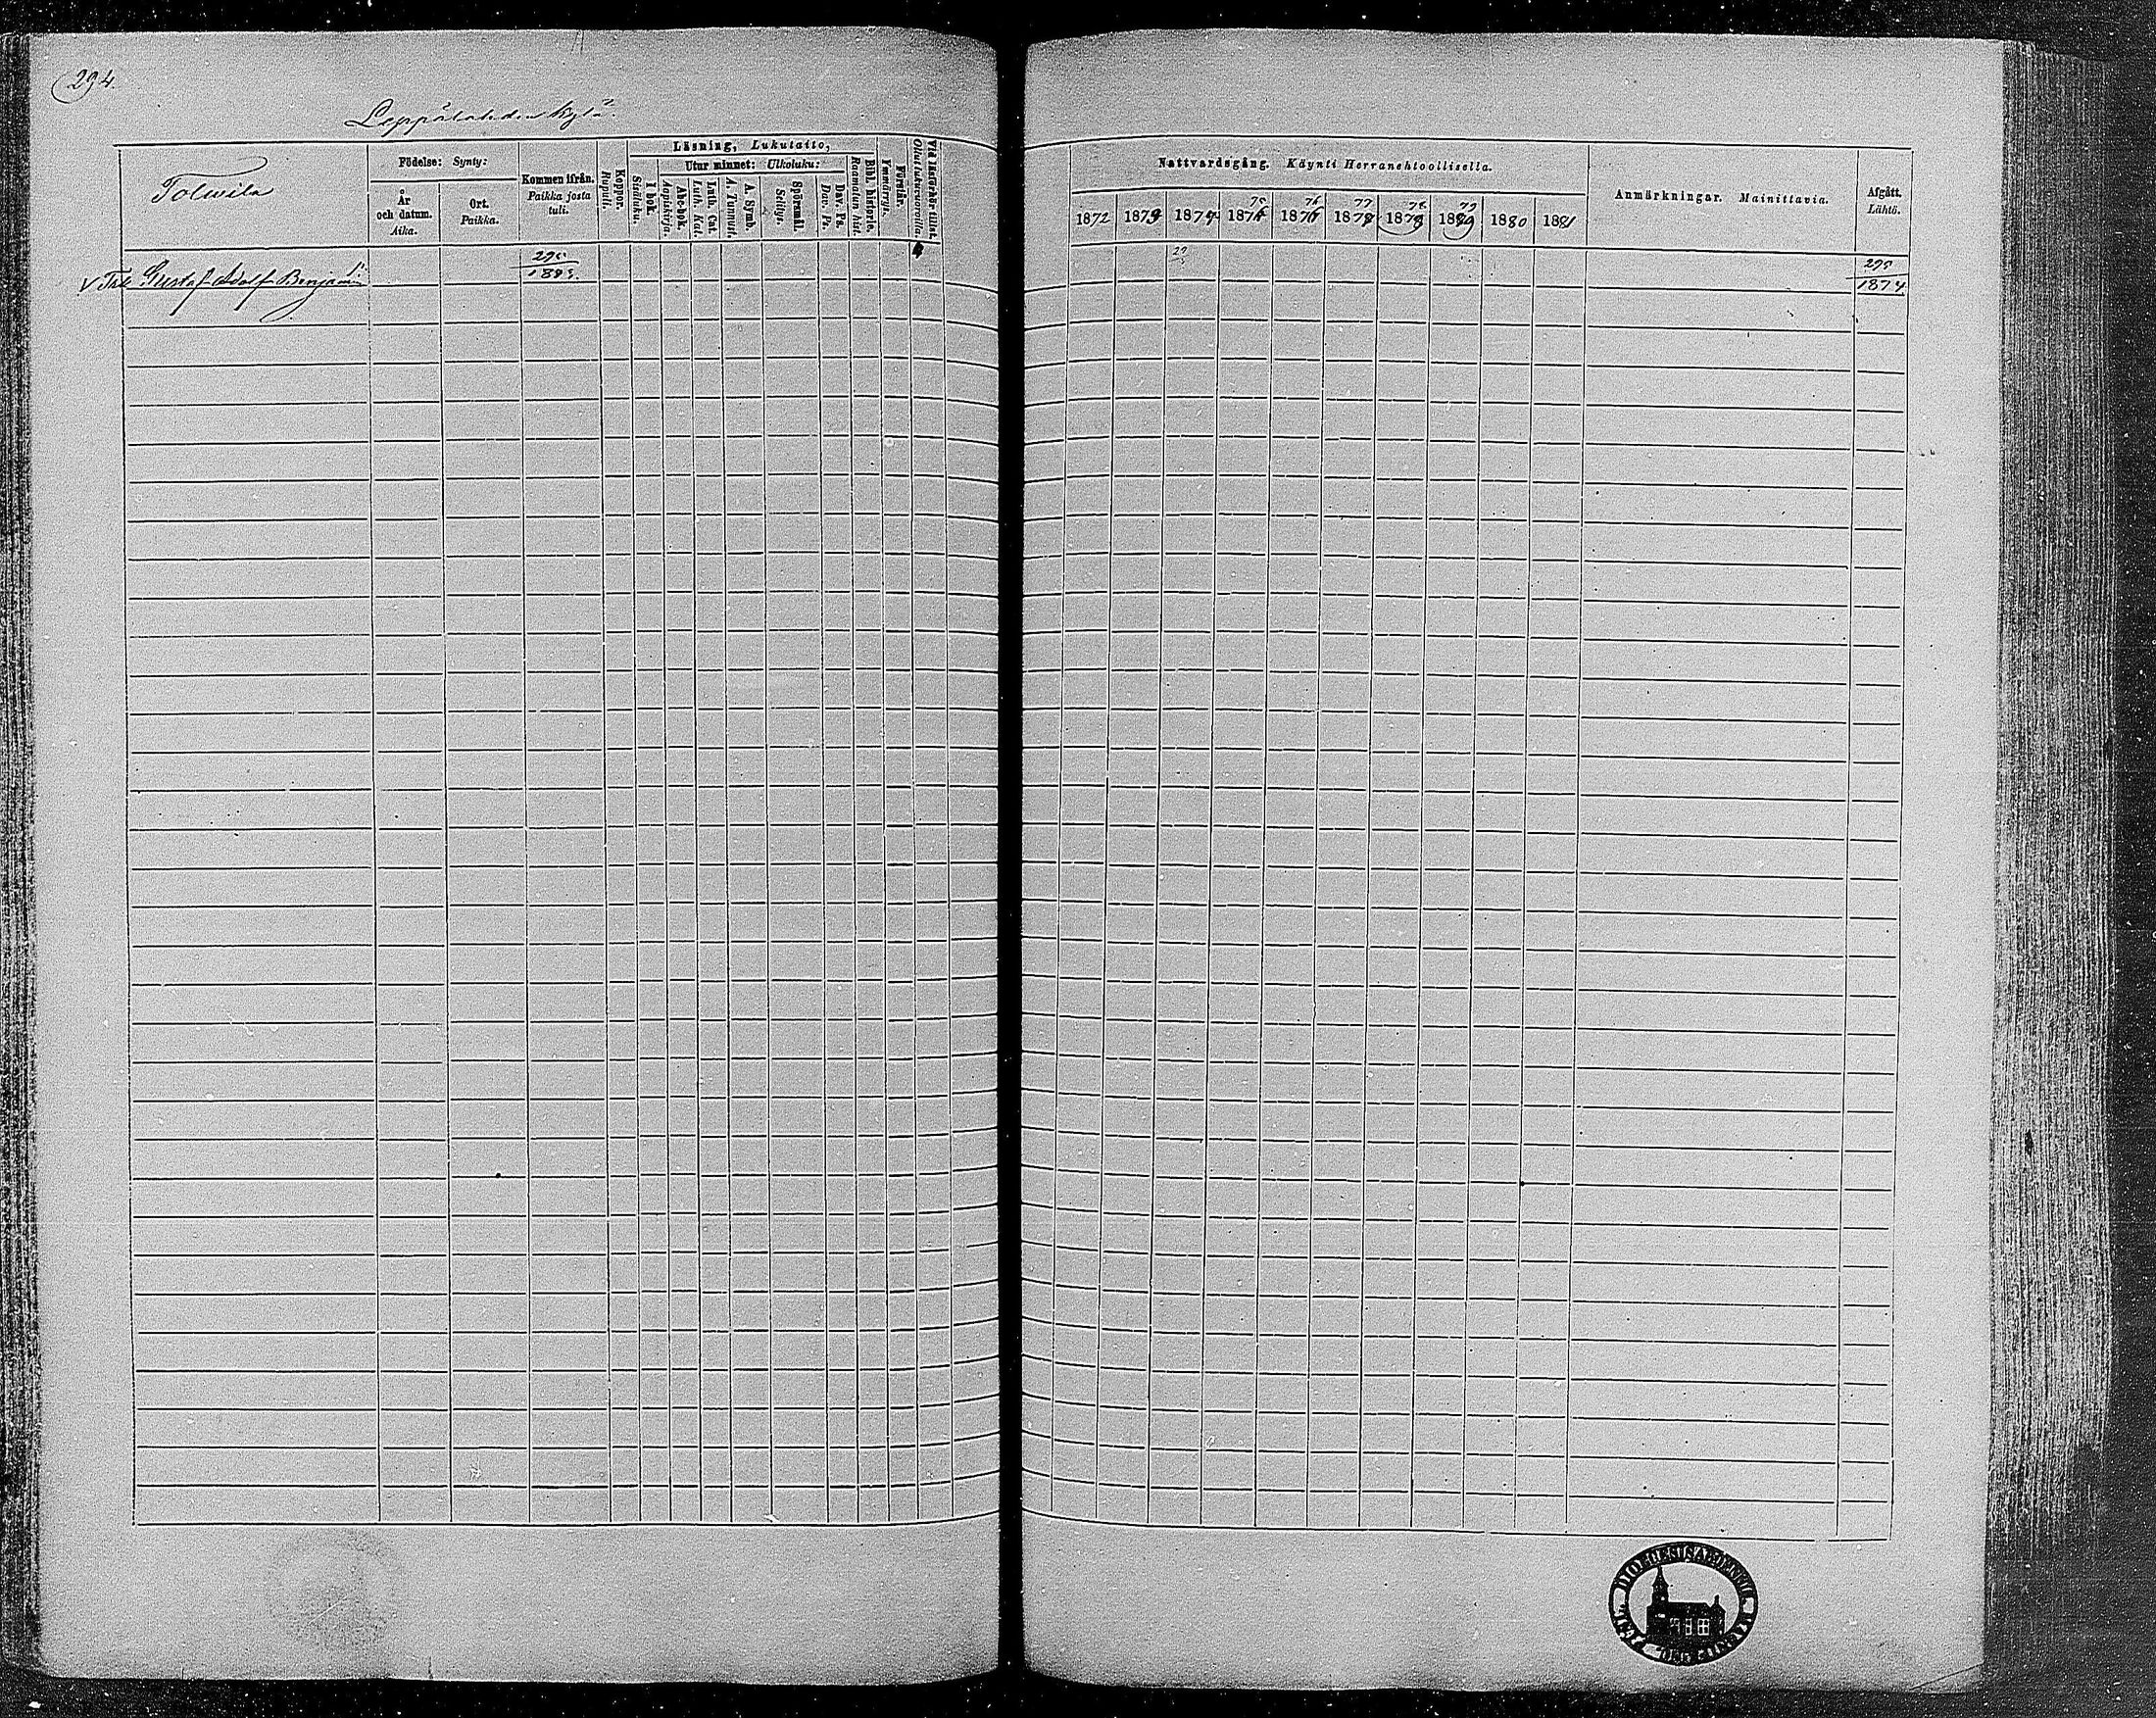 294.
Leppälahden kylä.
Tolwila
Födelse: Synty:
År och datum. Aika.
Ort. Paikka.
Kommen ifrån. Paikka josta tuli.
Koppor. Rupuli.
Läsning, Lukutaito,
I bok. Sisäluku.
Utur minnet: Ulkoluku:
Abc-bok. Aapiskirja.
Luth. Cat. Luth. Kat.
A. Symb. A. Tunnust.
Spörsmål. Selitys.
Dav. Ps. Dav. Ps.
Bibl. historie. Raamatun hist.
Förstår. Ymmärrys.
Vid läsförhör tillst. Ollut lukuvuoroilla.
Nattvardsgång. Käynti Herranehtoollisella.
75 76 77 78 79
1872 1873 1874 1875 1876 1878 1878 1879 1880 1881
Anmärkningar. Mainittavia.
Afgått. Lähtö.
Gustaf Adolf Benjam:
295
29
295
1874